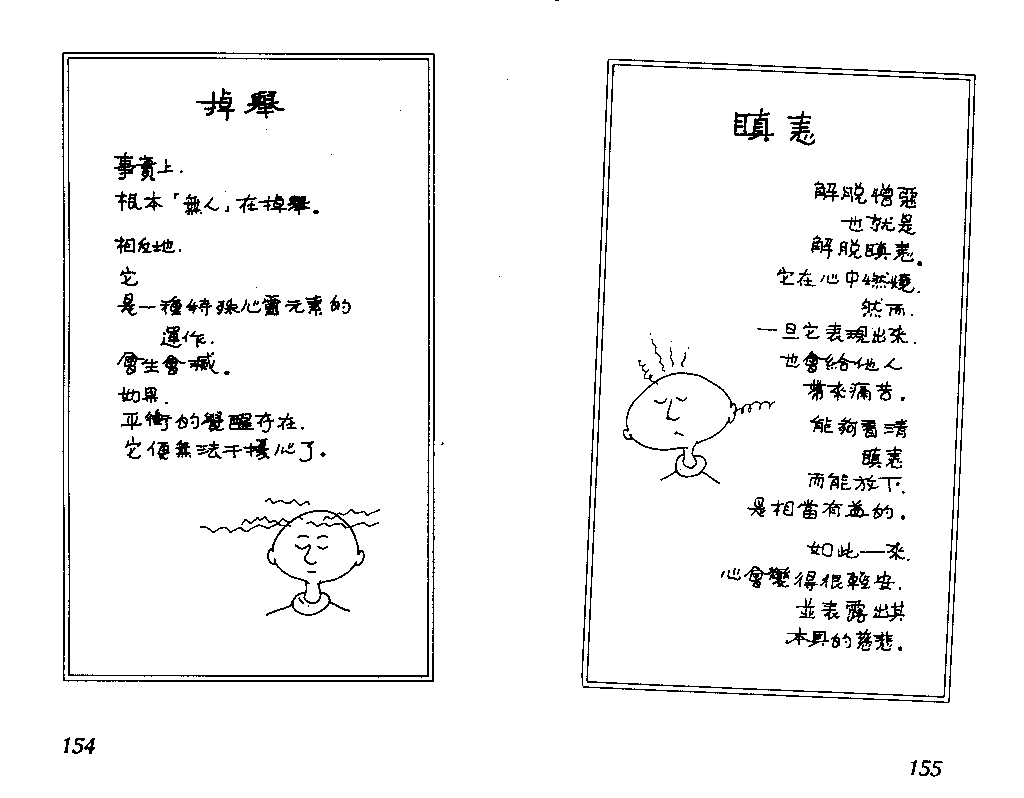 掉舉
事實上.
根本「無人」在掉舉。
相反地.
它
是一種特殊心靈元素的
運作.
會生會滅。
如果.
平衡的覺醒存在.
它便無法干擾心了。
154
瞋恚
解脫憎惡
也就是
解脫瞋恚。
它在心中燃燒.
然而.
一旦它表現出來.
也會給他人
帶來痛苦。
能夠看清
瞋恚
而能放下.
是相當有益的。
如此一來.
心會變得很輕安.
並表露出其
本具的慈悲。
155